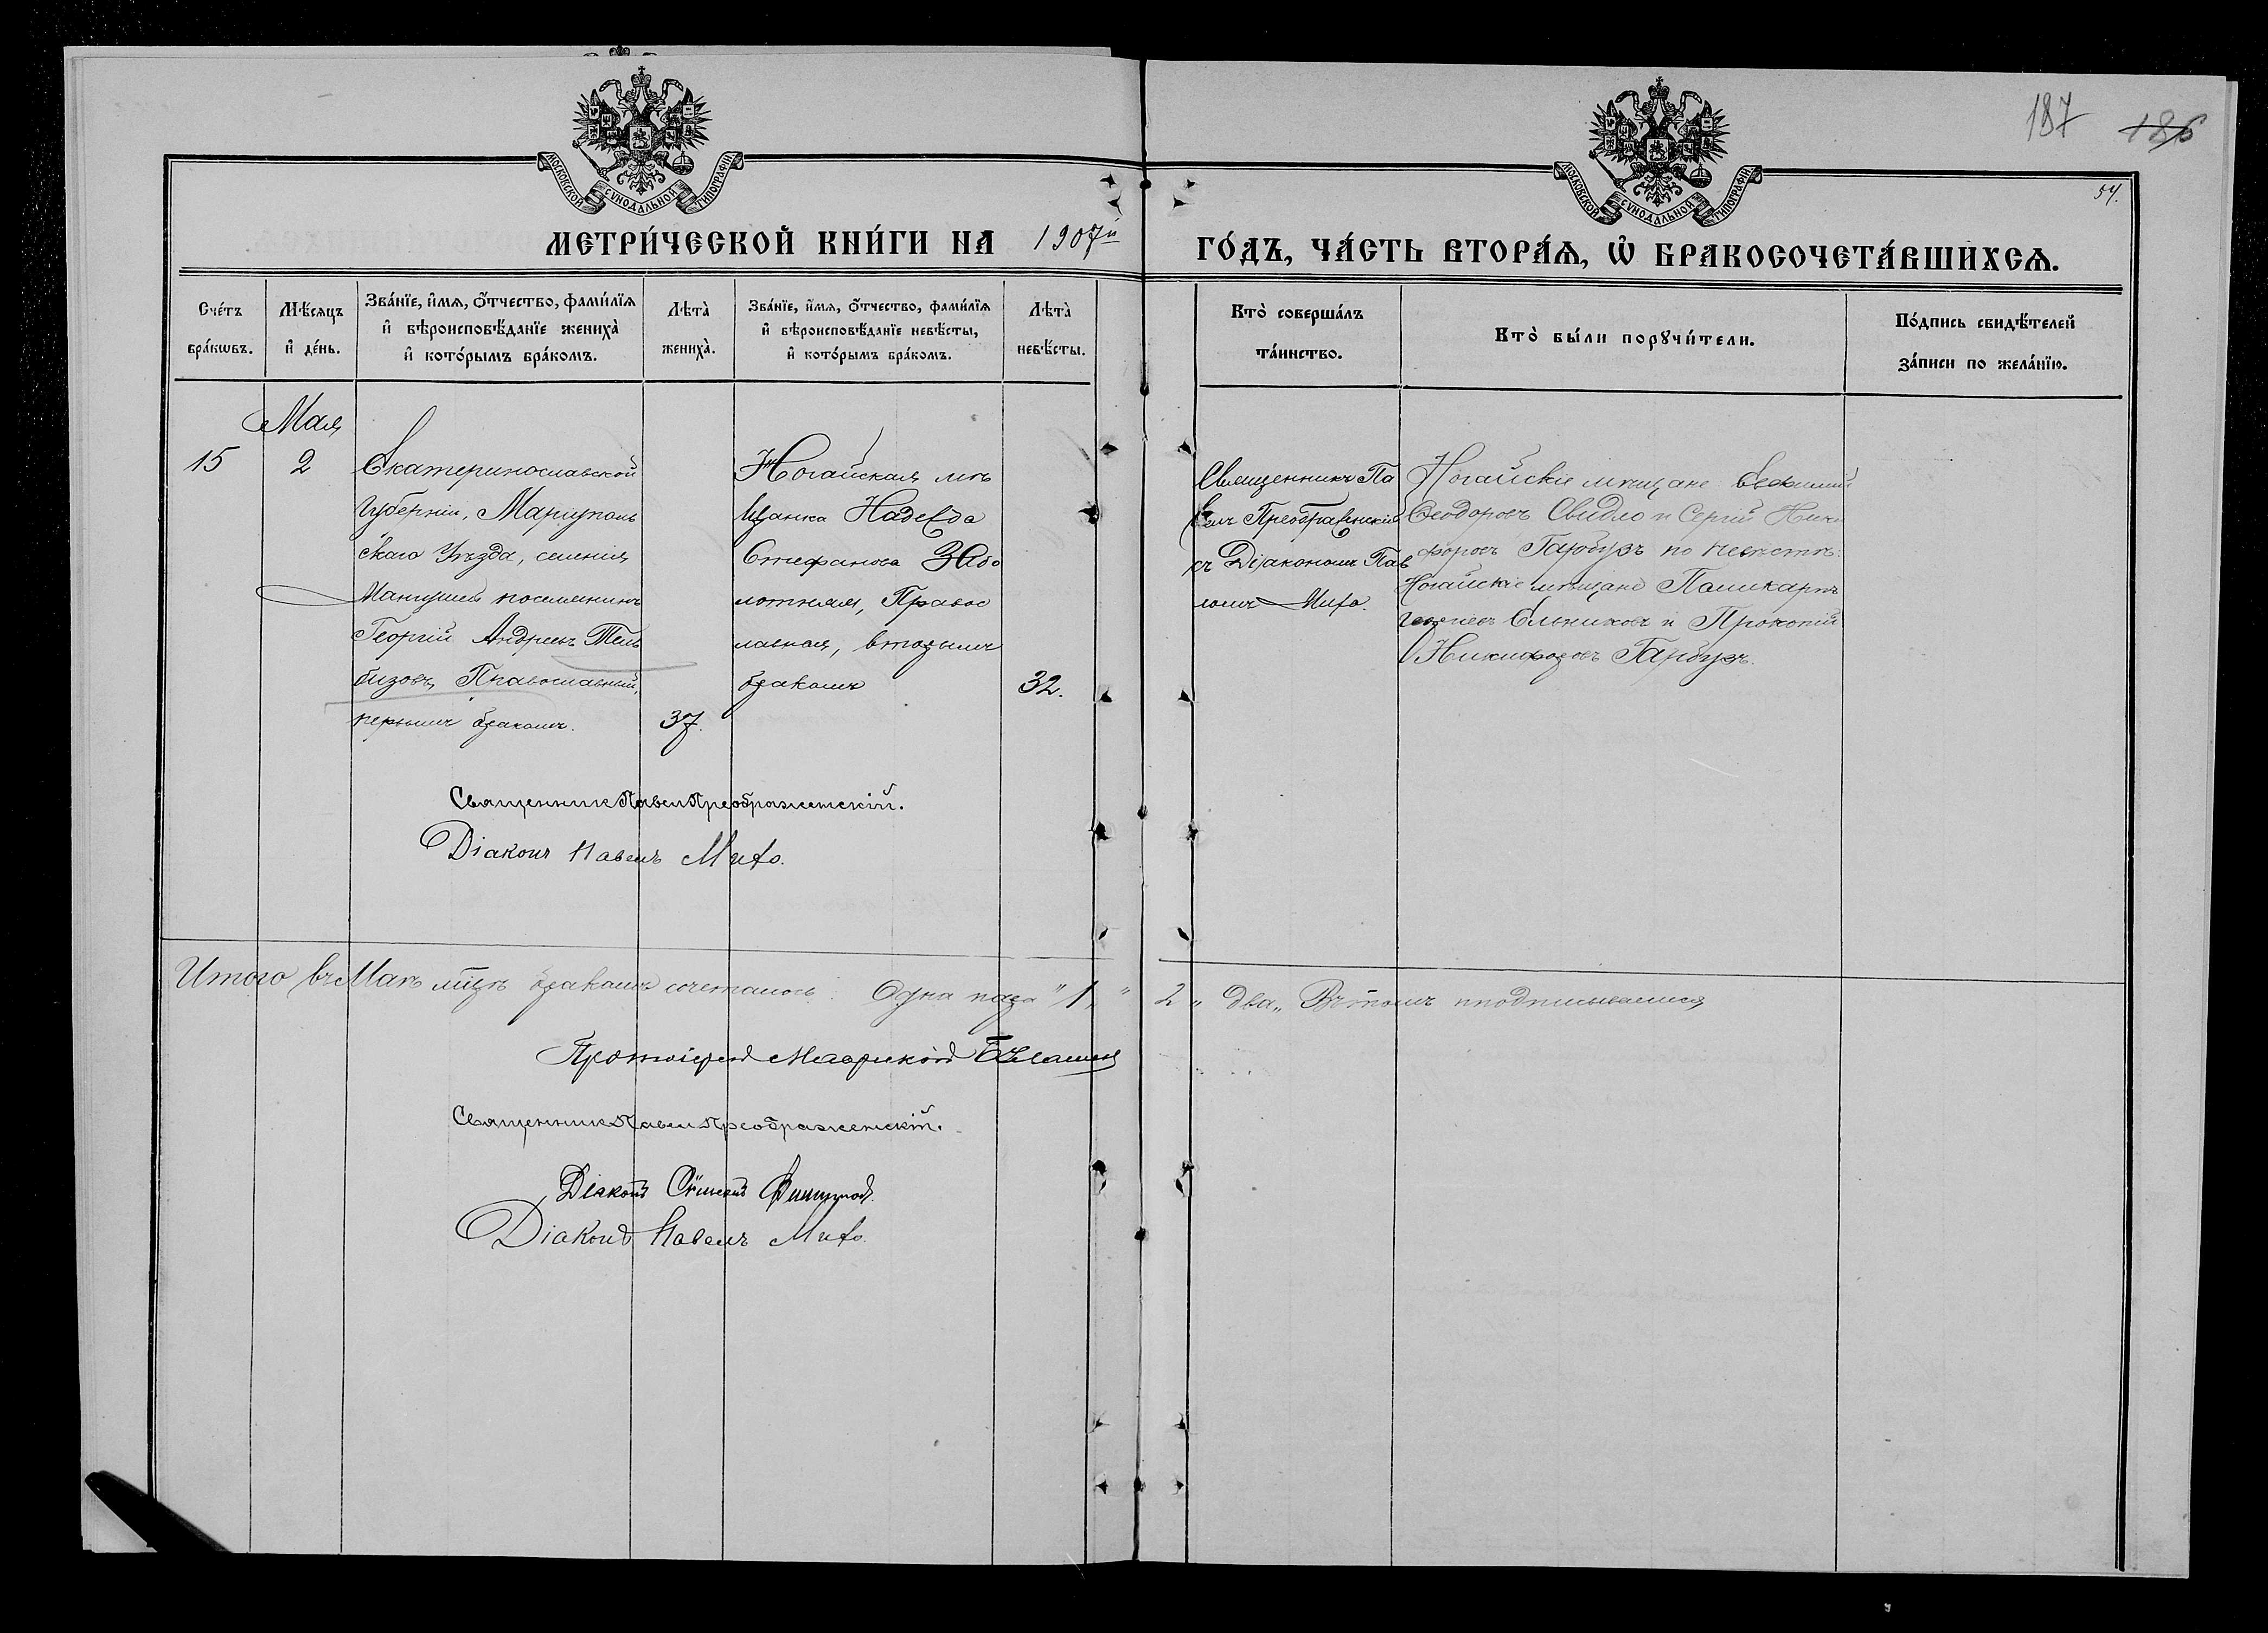 187 186
54.
МОСКОВСКОЙ СѴНОДАЛЬНОЙ ТИПОГРАФІИ
МОСКОВСКОЙ СѴНОДАЛЬНОЙ ТИПОГРАФІИ
МЕТРИ́ЧЕСКОЙ КНИ́ГИ НА 1907й ГО́ДЪ, ЧА́СТЬ ВТОРА́Ѧ, Ѡ҆ БРАКОСОЧЕТА́ВШИХСѦ.
Сче́тъ
бра́кѡвъ.
Мѣ́сяцъ
и҆ де́нь.
Зва́нїе, и҆́мя, ѻ҆́тчество, фами́лїя
и҆ вѣроисповѣ́данїе жениха̀
и҆ кото́рымъ бра́комъ.
Лѣта̀
жениха̀.
Зва́нїе, и҆́мя, ѻ҆́тчество, фами́лїя
и҆ вѣроисповѣ́данїе невѣ́сты,
и҆ кото́рымъ бра́комъ.
Лѣта̀
невѣ́сты.
Кто̀ соверша́лъ
та́инство.
Кто̀ бы́ли порꙋчи́тели.
По́дпись свидѣ́телей
за́писи по жела́нїю.
Мая
15
2
Екатеринославской
Губерніи, Маріуполь
скаго Уѣзда, селенія
Мангуша поселянинъ
Георгій Андреевъ Тель
бизовъ, Православный,
первымъ бракомъ.
37.
Ногайская мѣ
щанка Надежда
Стефанова Забо
лотняя, Правос
лавная, вторымъ
бракомъ
32.
Священникъ Па
велъ Преображенскій
съ Діакономъ Пав
ломъ
Ногайскіе мѣщане
Ѳеодоровъ Свидло и Сергій Ники
форовъ Гарбузъ по невѣстѣ:
Ногайскіе мѣщане Поликарпъ
Ельниковъ и Прокопій
Никифоровъ Гарбузъ.
Священник Павел Преображенскій.
Діаконъ Павелъ
Итого въ Маѣ мцѣ бракомъ сочеталось: Одна пара "1" "2" два" Въ томъ подписываемся
Протоіерей
Священник Павел Преображенскій.
Діаконъ
Діаконъ Павелъ